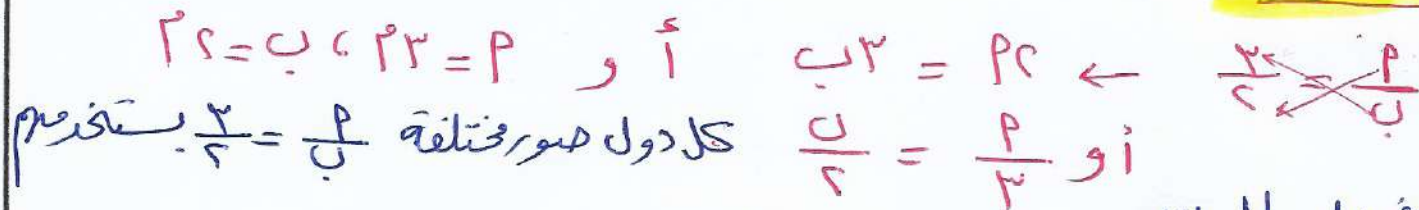 أ/ب = ٣/٢ ← ٢أ = ٣ب أو أ = ٣م ، ب = ٢م
أو أ/٣ = ب/٢ كل دول صور مختلفة أ/ب = ٣/٢ بستخدمهم